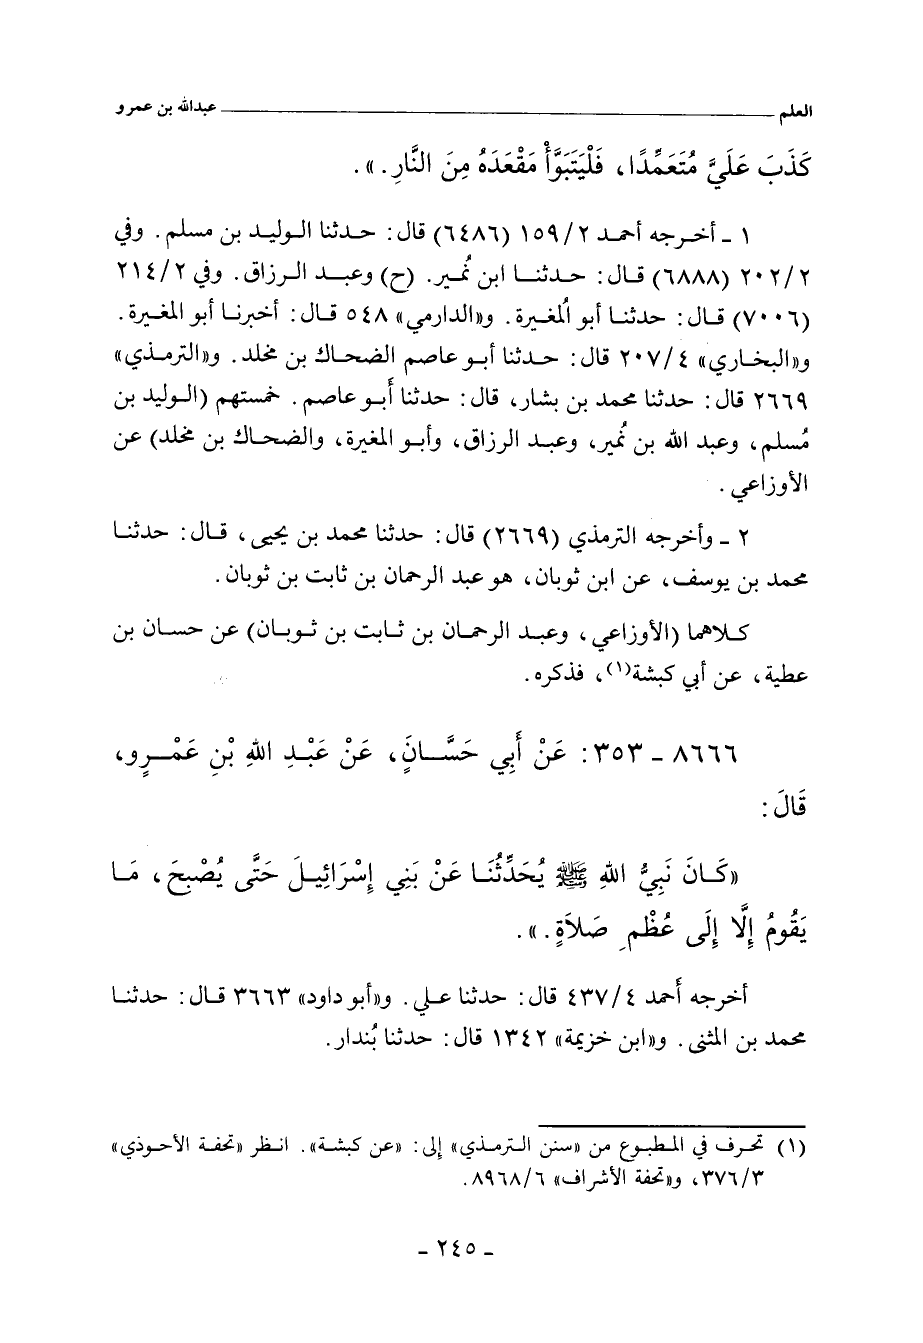 العلم ـــــــــ عبدالله بن عمرو
كَذَبَ عَلَيَّ مُتَعَمِّدًا، فَلْيَتَبَوَّأْ مَقْعَدَهُ مِنَ النَّارِ.».
١ ـ أخرجه أحمد ١٥٩/٢ (٦٤٨٦) قال: حدثنا الوليد بن مسلم. وفي
٢٠٢/٢ (٦٨٨٨) قال: حدثنا ابن نُمير. (ح) وعبد الرزاق. وفي ٢١٤/٢
(٧٠٠٦) قال: حدثنا أبو المُغيرة. و«الدارمي» ٥٤٨ قال: أخبرنا أبو المغيرة.
و«البخاري» ٢٠٧/٤ قال: حدثنا أبو عاصم الضحاك بن مخلد. و«الترمذي»
٢٦٦٩ قال: حدثنا محمد بن بشار، قال: حدثنا أبو عاصم. خمستهم (الوليد بن
مُسلم، وعبد الله بن نُمير، وعبد الرزاق، وأبو المغيرة، والضحاك بن مخلد) عن
الأوزاعي.
٢ ـ وأخرجه الترمذي (٢٦٦٩) قال: حدثنا محمد بن يحيى، قال: حدثنا
محمد بن يوسف، عن ابن ثوبان، هو عبد الرحمان بن ثابت بن ثوبان.
كلاهما (الأوزاعي، وعبد الرحمان بن ثابت بن ثوبان) عن حسان بن
عطية، عن أبي كبشة(١)، فذكره.
٨٦٦٦ ـ ٣٥٣: عَنْ أَبِي حَسَّانٍ، عَنْ عَبْدِ اللهِ بْنِ عَمْرٍو،
قَالَ:
«كَانَ نَبِيُّ اللهِ ﷺ يُحَدِّثُنَا عَنْ بَنِي إِسْرَائِيلَ حَتَّى يُصْبِحَ، مَا
يَقُومُ إِلَّا إِلَى عُظْمِ صَلاَةٍ.».
أخرجه أحمد ٤٣٧/٤ قال: حدثنا علي. و«أبو داود» ٣٦٦٣ قال: حدثنا
محمد بن المثنى. و«ابن خزيمة» ١٣٤٢ قال: حدثنا بُندار.
(١) تحرف في المطبوع من «سنن الترمذي» إلى: «عن كبشة». انظر «تحفة الأحوذي»
٣٧٦/٣، و«تحفة الأشراف» ٨٩٦٨/٦.
ـ ٢٤٥ ـ